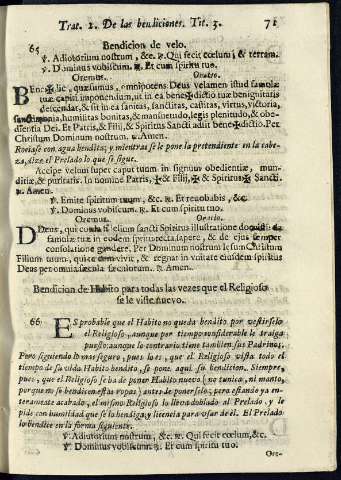 Trat. 1. De las bendiciones. Tit. 3. 71
65 Bendicion de velo.
℣. Adiutorium nostrum, &c. ℟. Qui fecit cœlum, & terram.
℣. Dominus vobiscum. ℟. Et cum spiritu tuo.
Oremus. Oratio.
BEne✠dic, quæsumus, omnipotens Deus velamen istud famulæ
tuæ capiti imponendum, ut in ea bene✠dictio tuæ benignitatis
descendat, & sit in ea sanitas, sanctitas, castitas, virtus, victoria,
sanctimonia, humilitas bonitas, & mansuetudo, legis plenitudo, & obe-
dientia Dei. Et Patris, & Filii, & Spiritus Sancti adsit bene✠dictio. Per
Christum Dominum nostrum. ℟. Amen.
Roziase con agua bendita; y mientras se le pone la pretendiente en la cabe-
za, dize el Prelado lo que se sigue.
Accipe velum super caput tuum in signum obedientiæ, mun-
ditiæ, & puritatis. In nomine Patris, ✠ & Filii, ✠ & Spiritus ✠ Sancti.
℟. Amen.
℣. Emitte spiritum tuum, &c. ℟. Et renovabis, &c.
℣. Dominus vobiscum. ℟. Et cum spiritu tuo.
Oremus. Oratio.
DEus, qui corda fidelium sancti Spiritus illustratione docuisti: da
famulæ tuæ in eodem spiritu recta sapere, & de ejus semper
consolatione gaudere. Per Dominum nostrum Iesum Christum
Filium tuum, qui tecum vivit, & regnat in unitate ejusdem spiritus
Deus per omnia sæcula sæculorum. ℟. Amen.
Bendicion de Habito para todas las vezes que el Religioso
se le viste nuevo.
66 ES probable que el Habito no queda bendito por vestirselo
el Religioso, aunque por tiempo considerable le traiga
puesto: aunque lo contrario tiene tambien sus Padrinos.
Pero siguiendo lo mas seguro, pues lo es, que el Religioso vista todo el
tiempo de su vida Habito bendito, se pone aqui su bendicion. Siempre,
pues, que el Religioso se ha de poner Habito nuevo (no tunica, ni manto,
porque no se bendicen estas ropas) antes de ponerselo; pero estando ya en-
teramente acabado, el mismo Religioso lo lleva doblado al Prelado, y le
pide con humildad que se lo bendiga; y licencia para usar de él. El Prelado
lo bendice en la forma siguiente.
℣. Adiutorium nostrum, &c. ℟. Qui fecit cœlum, &c.
℣. Dominus vobiscum. ℟. Et cum spiritu tuo.
Ore-